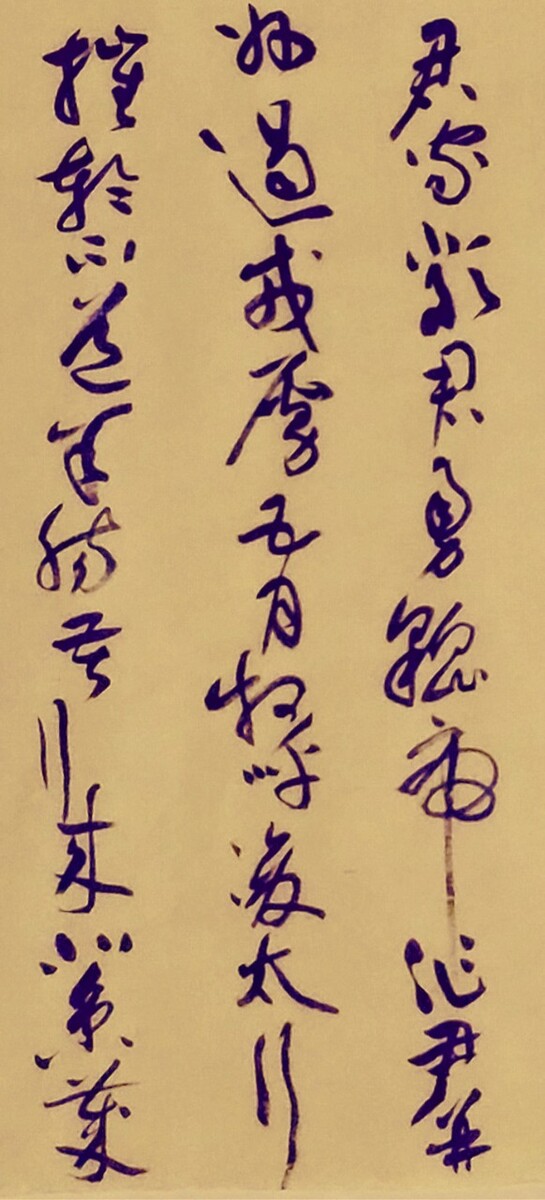 君家嚴君勇貔虎作尹并
州遏戎虜五月相呼渡太行
摧輪不道羊腸苦行來北京歲